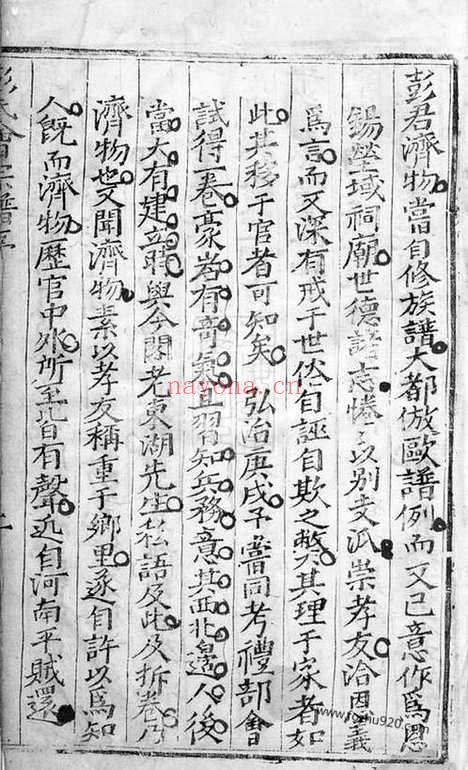 彭君濟物嘗自修族譜大都倣歐譜例而又己意作爲恩
錫塋域祠廟世德諸志惓〻以別支派崇孝友洽恩義
爲言而又深有戒于世俗自誣自欺之弊其理于家者如
此其移于官者可知矣弘治庚戌予嘗同考禮部會
試得一卷豪宕有奇氣且習知兵務意其西北邊人後
當大有建立時與今閣老東湖先生私語及此及拆卷乃
濟物也又聞濟物素以孝友稱重于鄉里遂自許以爲知
人旣而濟物歷官中外所至皆有聲近自河南平賊還
彭氏會宗譜序
nayona.ca.cn